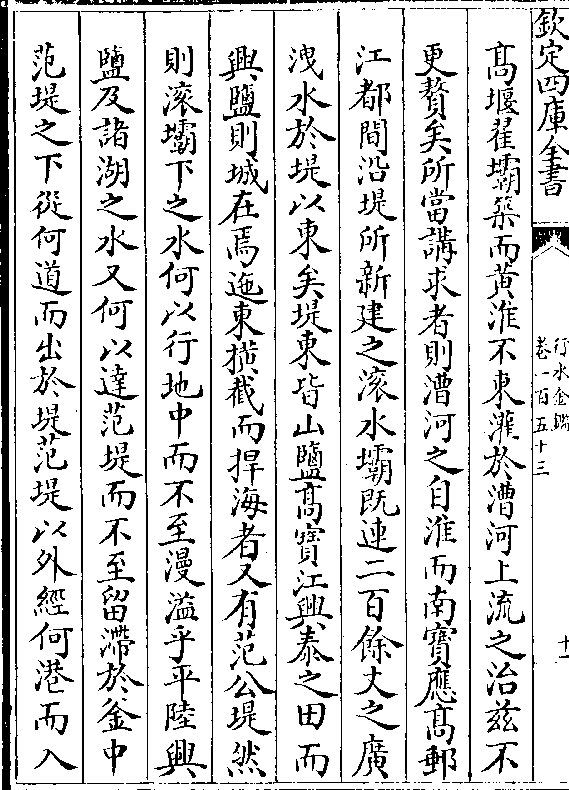 欽定四庫全書
行水金鑑
卷一百五十三
十一
高堰翟壩築而黃淮不東灌於漕河上流之治茲不
更贅矣所當講求者則漕河之自淮而南寶應高郵
江都間沿堤所新建之滚水壩既連二百餘丈之廣
洩水於堤以東矣堤東皆山鹽高寶江興泰之田而
興鹽則城在焉迤東橫截而捍海者又有范公堤然
則滚壩下之水何以行地中而不至漫溢乎平陸興
鹽及諸湖之水又何以達范堤而不至留滯於釜中
范堤之下從何道而出於堤范堤以外經何港而入